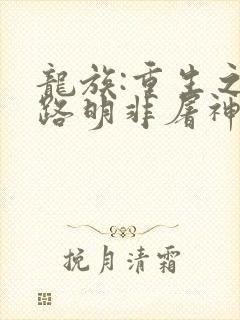 龍族:重生之
路明非屠神
挽月清霜